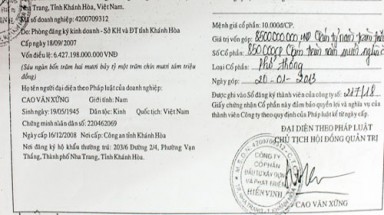 tỉnh Khánh Hòa, Việt Nam.
Mã số doanh nghiệp: 4200709312
Do: Phòng đăng ký kinh doanh - Sở KH và ĐT tỉnh Khánh Hòa
Cấp ngày 18/09/2007
Vốn điều lệ: 6.427.198.000.000 VNĐ
(Sáu ngàn bốn trăm hai mươi bảy tỷ một trăm chín mươi tám triệu đồng)
Họ tên người đại diện theo Pháp luật của doanh nghiệp:
CAO VĂN XỨNG Giới tính: Nam
Sinh ngày: 19/05/1945 Dân tộc: Kinh Quốc tịch: Việt Nam
Chứng minh nhân dân số: 220462069
Ngày cấp: 16/12/2008 Nơi cấp: Công an tỉnh Khánh Hòa
Nơi đăng ký hộ khẩu thường trú: 203/6 Đường 2/4, Phường Vạn
Thắng, Thành phố Nha Trang, Tỉnh Khánh Hòa.
Mệnh giá cổ phần: 10.000đ/CP.
Giá trị vốn góp: 8500000000 VNĐ
Số Cổ phần: 850000CP
Loại cổ phần: Phổ thông
Ngày góp: 20-01-2013
Được ghi vào Sổ đăng ký thành viên công ty số
Giấy chứng nhận Cổ phần này đảm bảo quyền lợi và nghĩa vụ của
thành viên Công ty theo quy định của Pháp luật kể từ ngày cấp.
ĐẠI DIỆN THEO PHÁP LUẬT
CHỦ TỊCH HỘI ĐỒNG QUẢN TRỊ
CÔNG TY
CỔ PHẦN
ĐẦU TƯ XÂY DỰNG
VÀ PHÁT TRIỂN
HIỂN VINH
CAO VĂN XỨNG